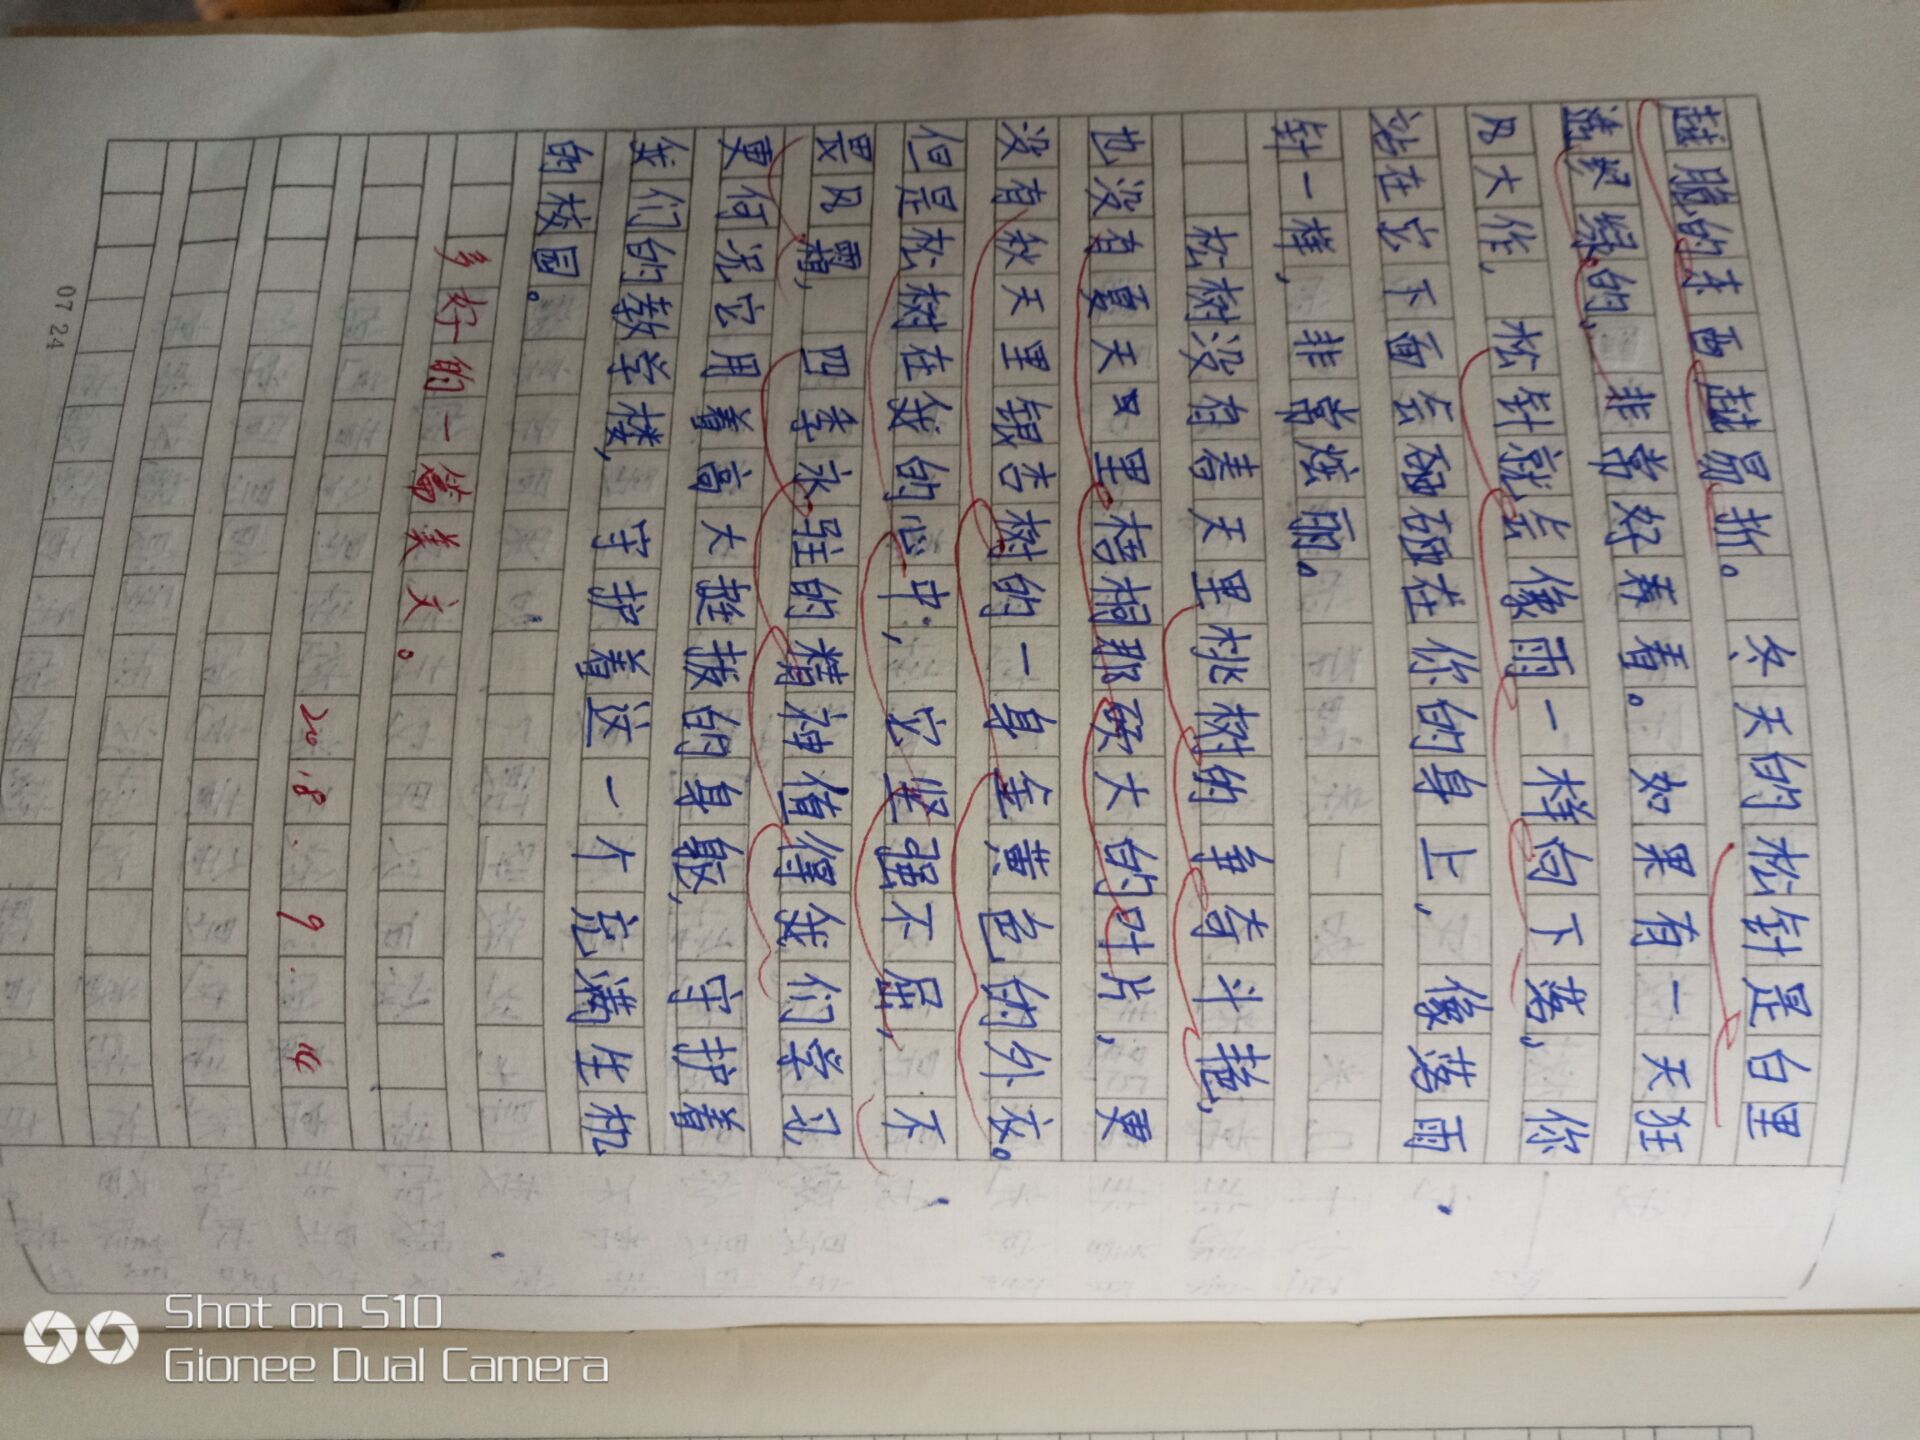 越脆的东西越易折。 冬天的松针是白里
透翠绿的,非常好养看。如果有一天狂
风大作,松针就会像雨一样向下落,你
站在它下面会砸在你的身上,像落雨
针一样,非常炫丽。
松树没有春天里桃树的争奇斗艳,
也没有夏天里梧桐那硕大的叶片,更
没有秋天里银杏树的一身金黄色的外衣。
但是松树在我的心中,它坚强不屈,不
畏风霜,四季永驻的精神值得我们学习
更何况它用着高大挺拔的身躯,守护着
我们的教学楼,守护着这一个充满生机
的校园。
多好的一篇美文。
2018.9.4
07 24
Shot on S10
Gionee Dual Camera